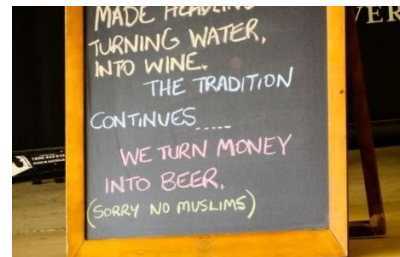 MADE HEADLINE
TURNING WATER,
INTO WINE.
THE TRADITION
CONTINUES.....
WE TURN MONEY
INTO BEER.
(SORRY NO MUSLIMS)